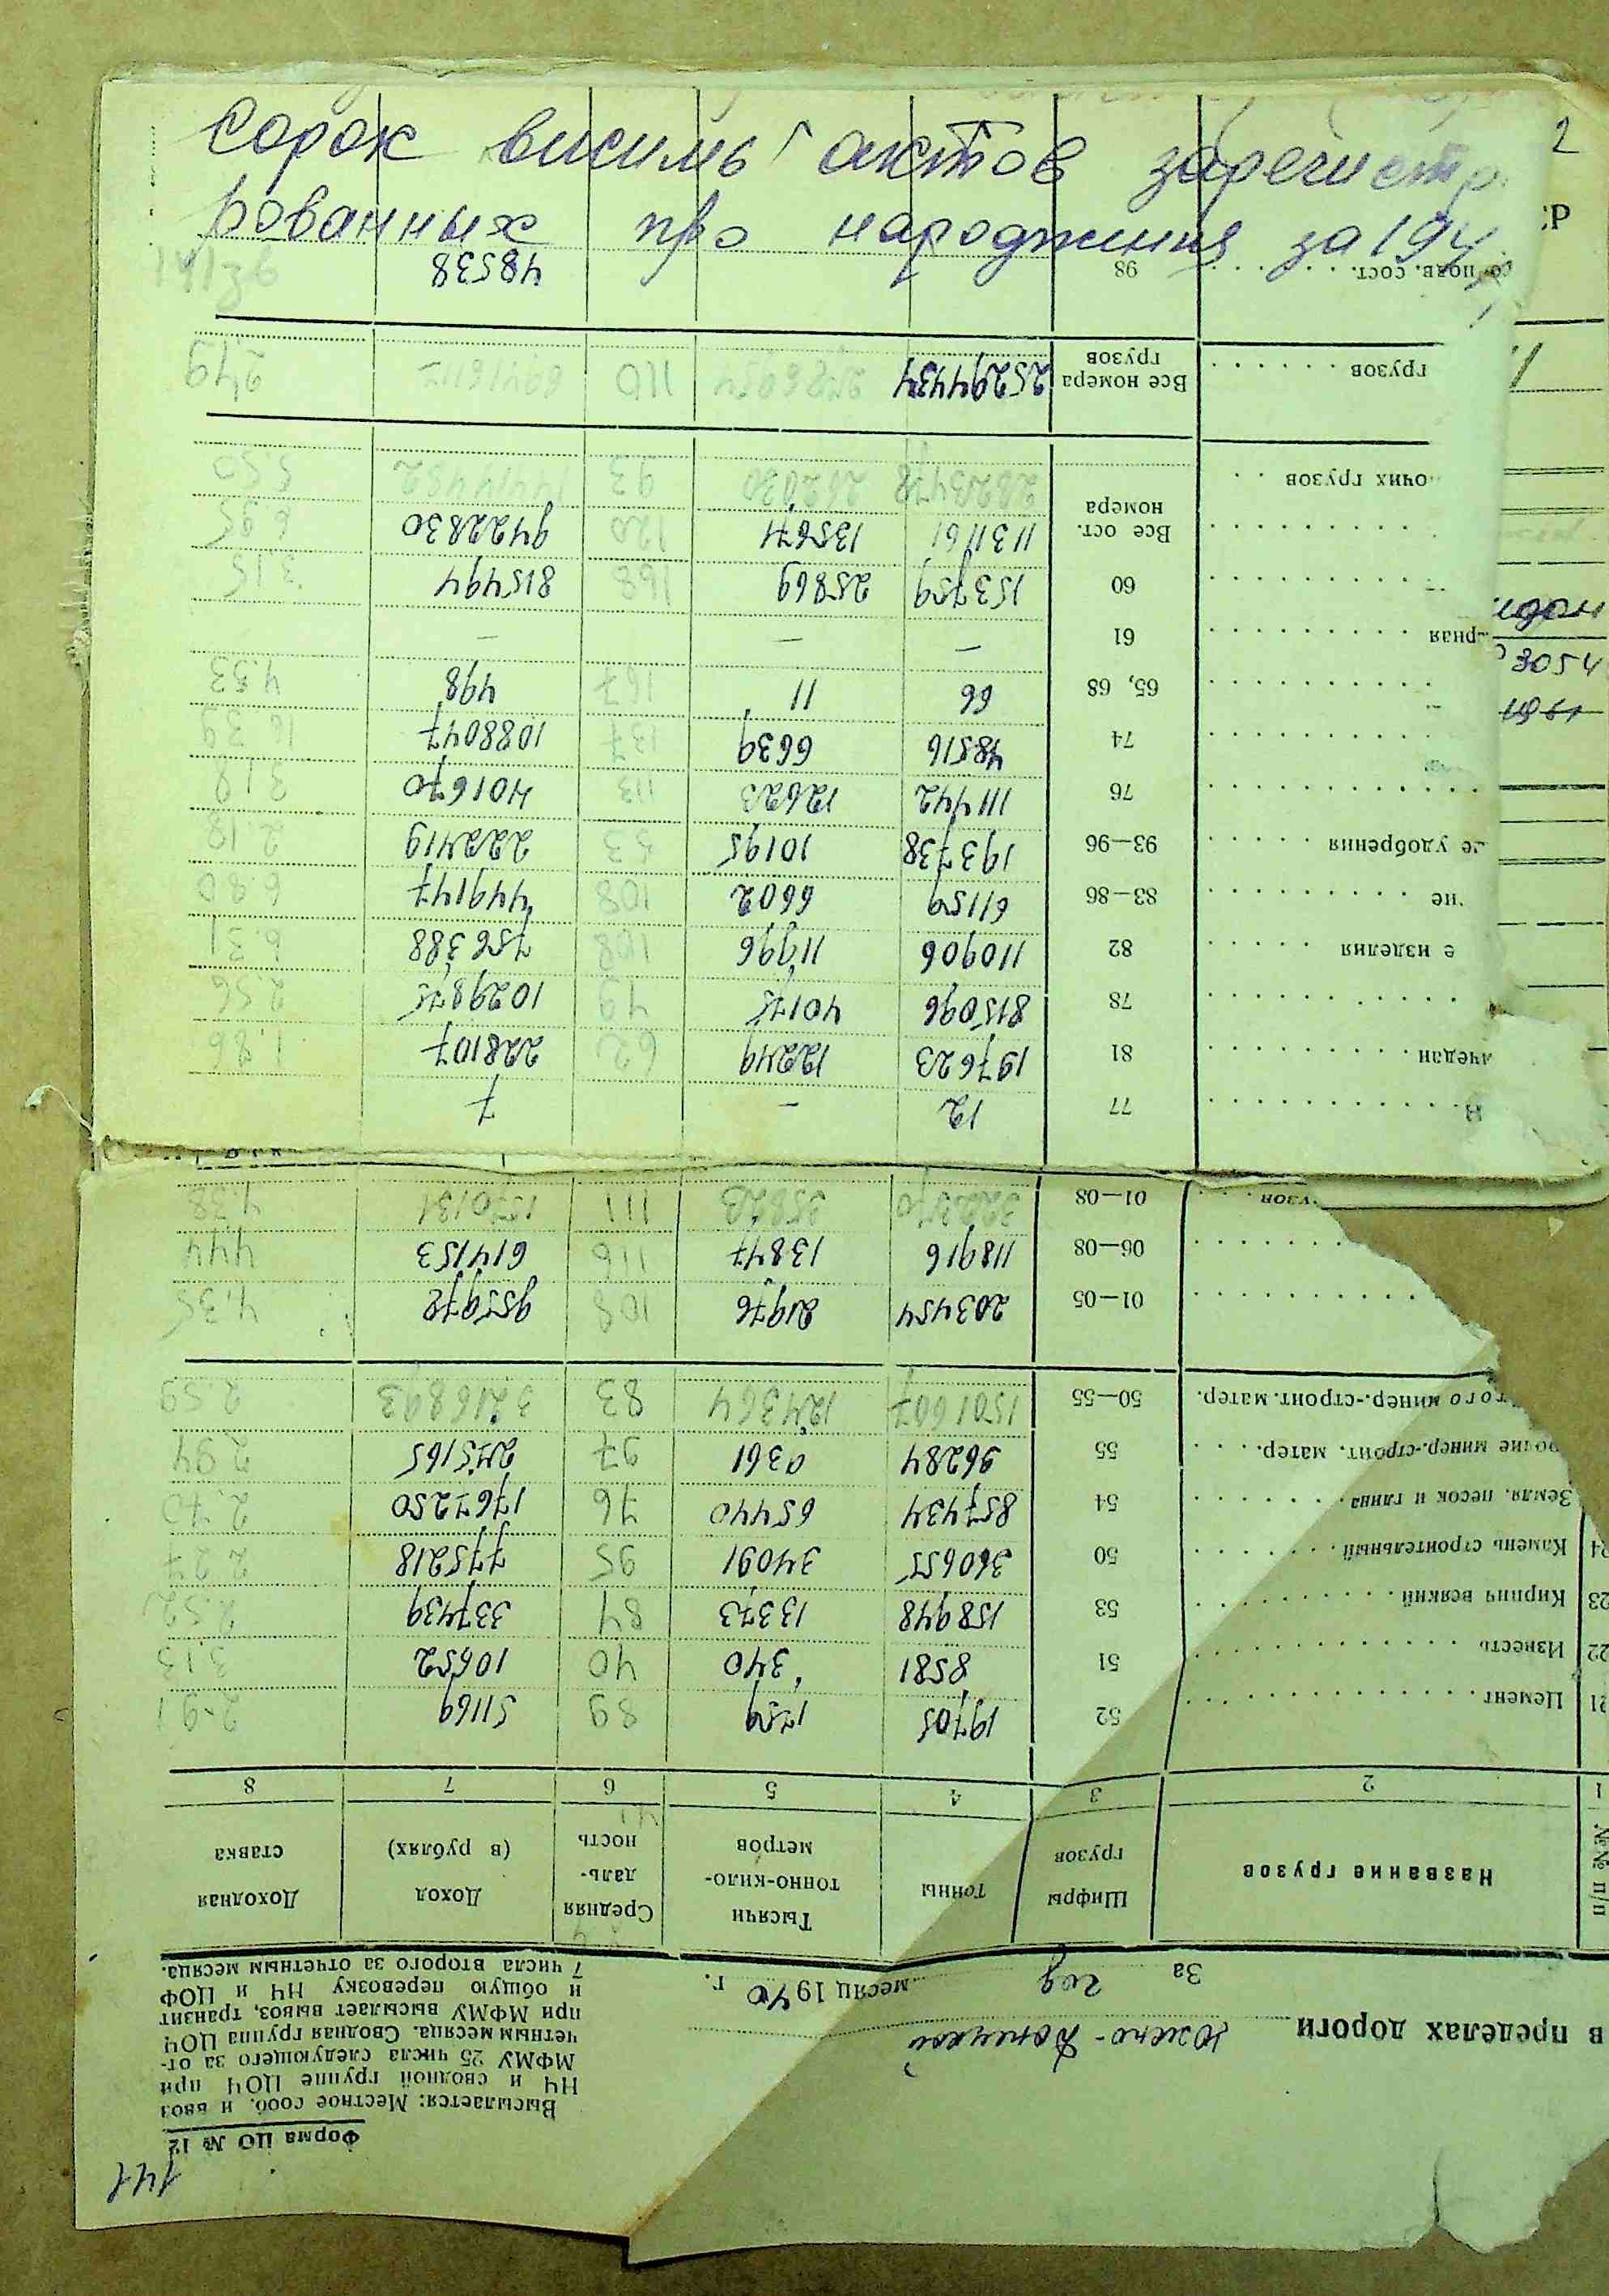 Сорок висимь актов зарегистр
рованных про народження за 194
141
Форма ЦО № 12
Высылается: Местное сооб. и ввоз
НЧ и сводной группе ЦОЧ при
МФМУ 25 числа следующего за от-
четным месяца. Сводная группа ЦОЧ
при МФМУ высылает вывоз, транзит
и общую перевозку НЧ и ЦОФ
7 числа второго за отчетным месяца.
в пределах дороги Южно-Донецкой
За год месяц 1940 г.
№№ п/п Название грузов Шифры грузов Тонны Тысячи тонно-кило- метров Средняя даль- ность Доход (в рублях) Доходная ставка
1 2 3 4 5 6 7 8
21 Цемент 52 19705 1759 89 51169 2.91
22 Известь 51 8581 340 40 10652 3.13
23 Кирпич всякий 53 158948 13373 84 337439 2.52
24 Камень строительный 50 360655 34091 95 775218 2.27
Земля, песок и глина 54 857434 65440 76 1767250 2.70
минер.-строит. матер. 55 96284 9361 97 275165 2.94
того минер.-строит. матер. 50—55 1501607 124364 83 3216893 2.59
01—05 203454 21976 108 955972 4.35
06—08 118916 13847 116 614153 4.44
узов 01—08 111 4.38
77 12 — 7
ачедан 81 197623 12249 62 228107 1.86
78 815096 40175 49 1029875 2.56
е изделия 82 110906 11996 108 756388 6.31
ие 83—86 61159 6602 108 449147 6.80
е удобрения 93—96 193738 10195 53 222419 2.18
76 111442 12623 113 401670 3.18
74 48516 6639 137 1088047 16.39
65, 68 66 11 167 498 4.53
рная 61 — — —
60 153759 25869 168 815494 3.15
Все ост. номера 1131161 135671 120 9422830 6.95
очих грузов 93
грузов Все номера грузов 25294434 110 2.49
подв. сост. 98 48538